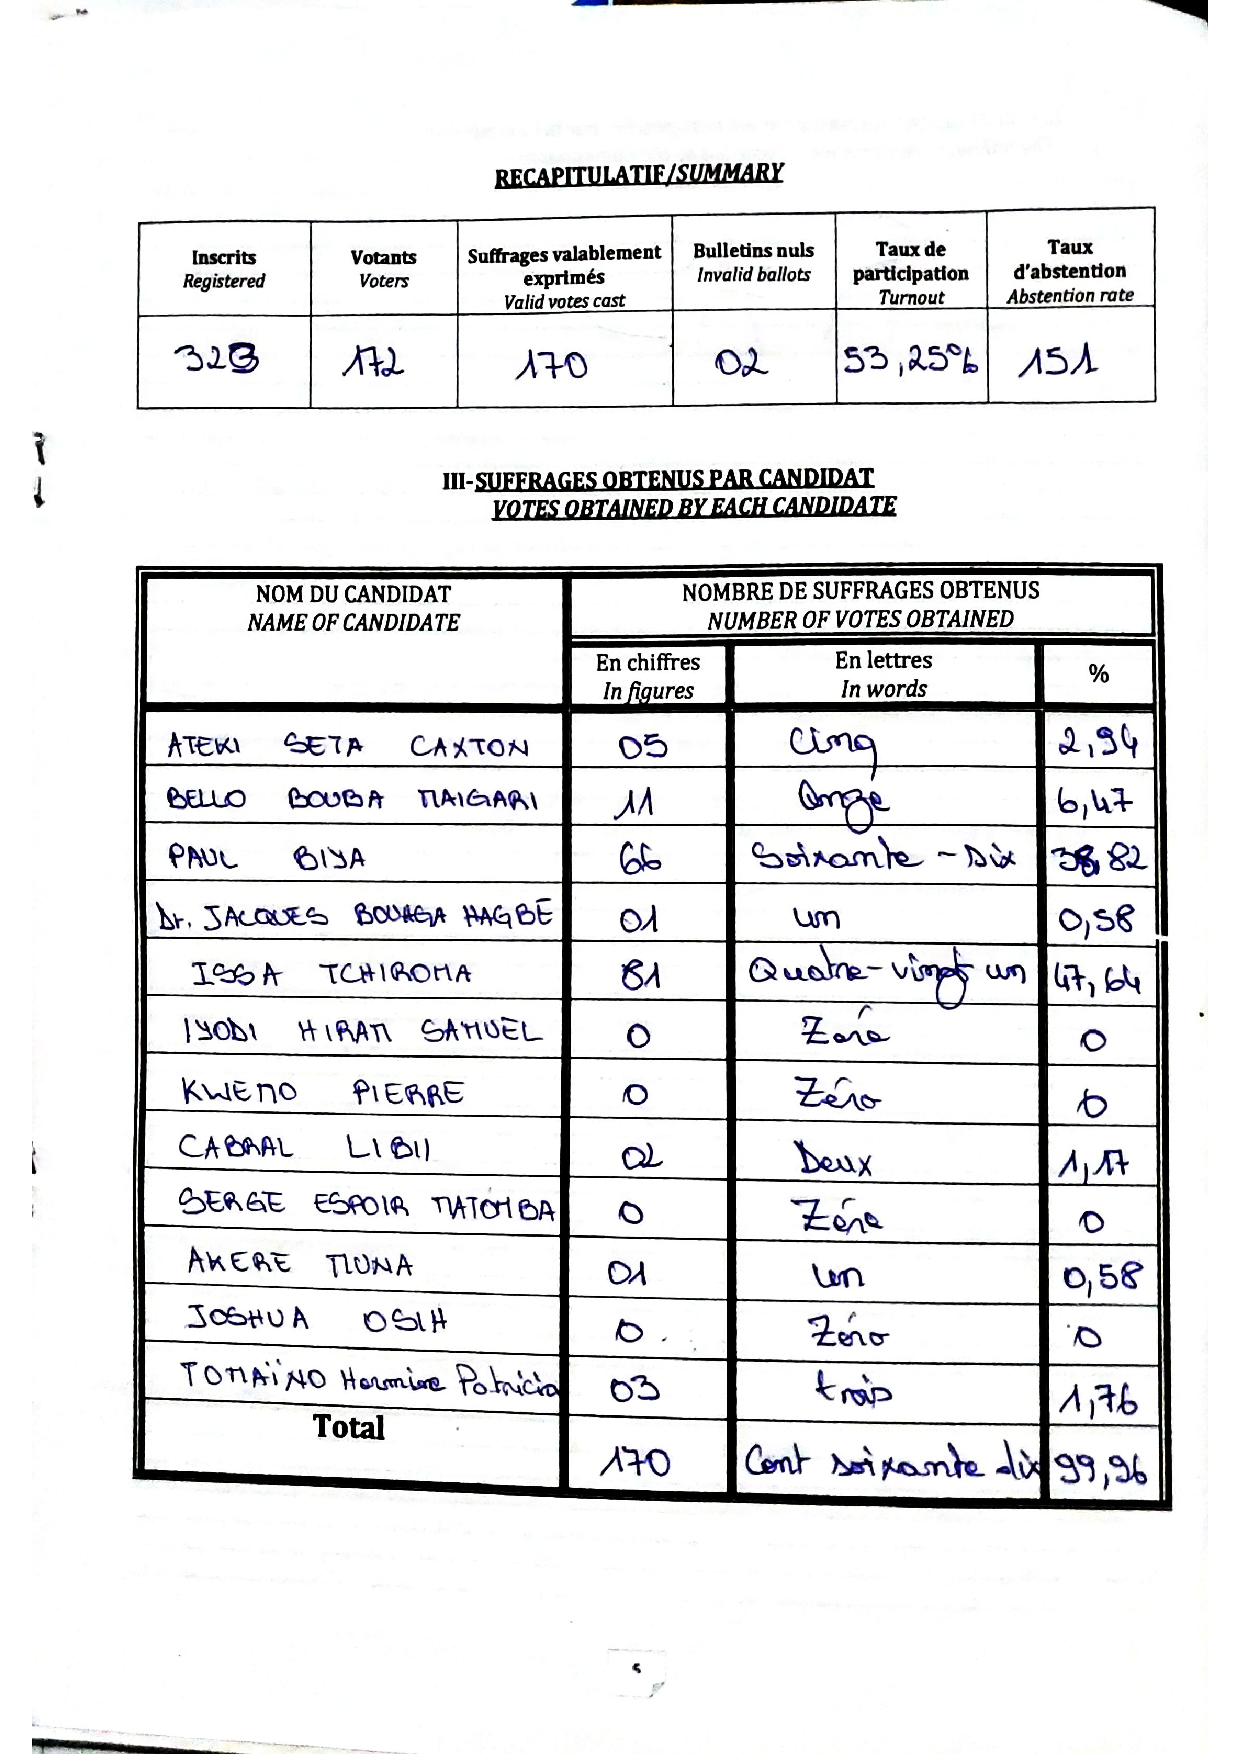 RECAPITULATIF/SUMMARY
Inscrits Registered | Votants Voters | Suffrages valablement exprimés Valid votes cast | Bulletins nuls Invalid ballots | Taux de participation Turnout | Taux d'abstention Abstention rate
323 | 172 | 170 | 02 | 53,25% | 151
III-SUFFRAGES OBTENUS PAR CANDIDAT
VOTES OBTAINED BY EACH CANDIDATE
NOM DU CANDIDAT NAME OF CANDIDATE | NOMBRE DE SUFFRAGES OBTENUS NUMBER OF VOTES OBTAINED
En chiffres In figures | En lettres In words | %
ATEKI SETA CAXTON | 05 | Cinq | 2,94
BELLO BOUBA MAIGARI | 11 | Onze | 6,47
PAUL BIYA | 66 | Soixante - Dix | 38,82
Dr. JACQUES BOUAGA HAGBE | 01 | un | 0,58
ISSA TCHIROMA | 81 | Quatre-vingt un | 47,64
IYODI HIRAM SAMUEL | 0 | Zéro | 0
KWEMO PIERRE | 0 | Zéro | 0
CABRAL LIBII | 02 | Deux | 1,17
SERGE ESPOIR MATOMBA | 0 | Zéro | 0
AKERE MUNA | 01 | un | 0,58
JOSHUA OSIH | 0 | Zéro | 0
TOMAÏNO Hermine Patricia | 03 | trois | 1,76
Total | 170 | Cent soixante dix | 99,96
5